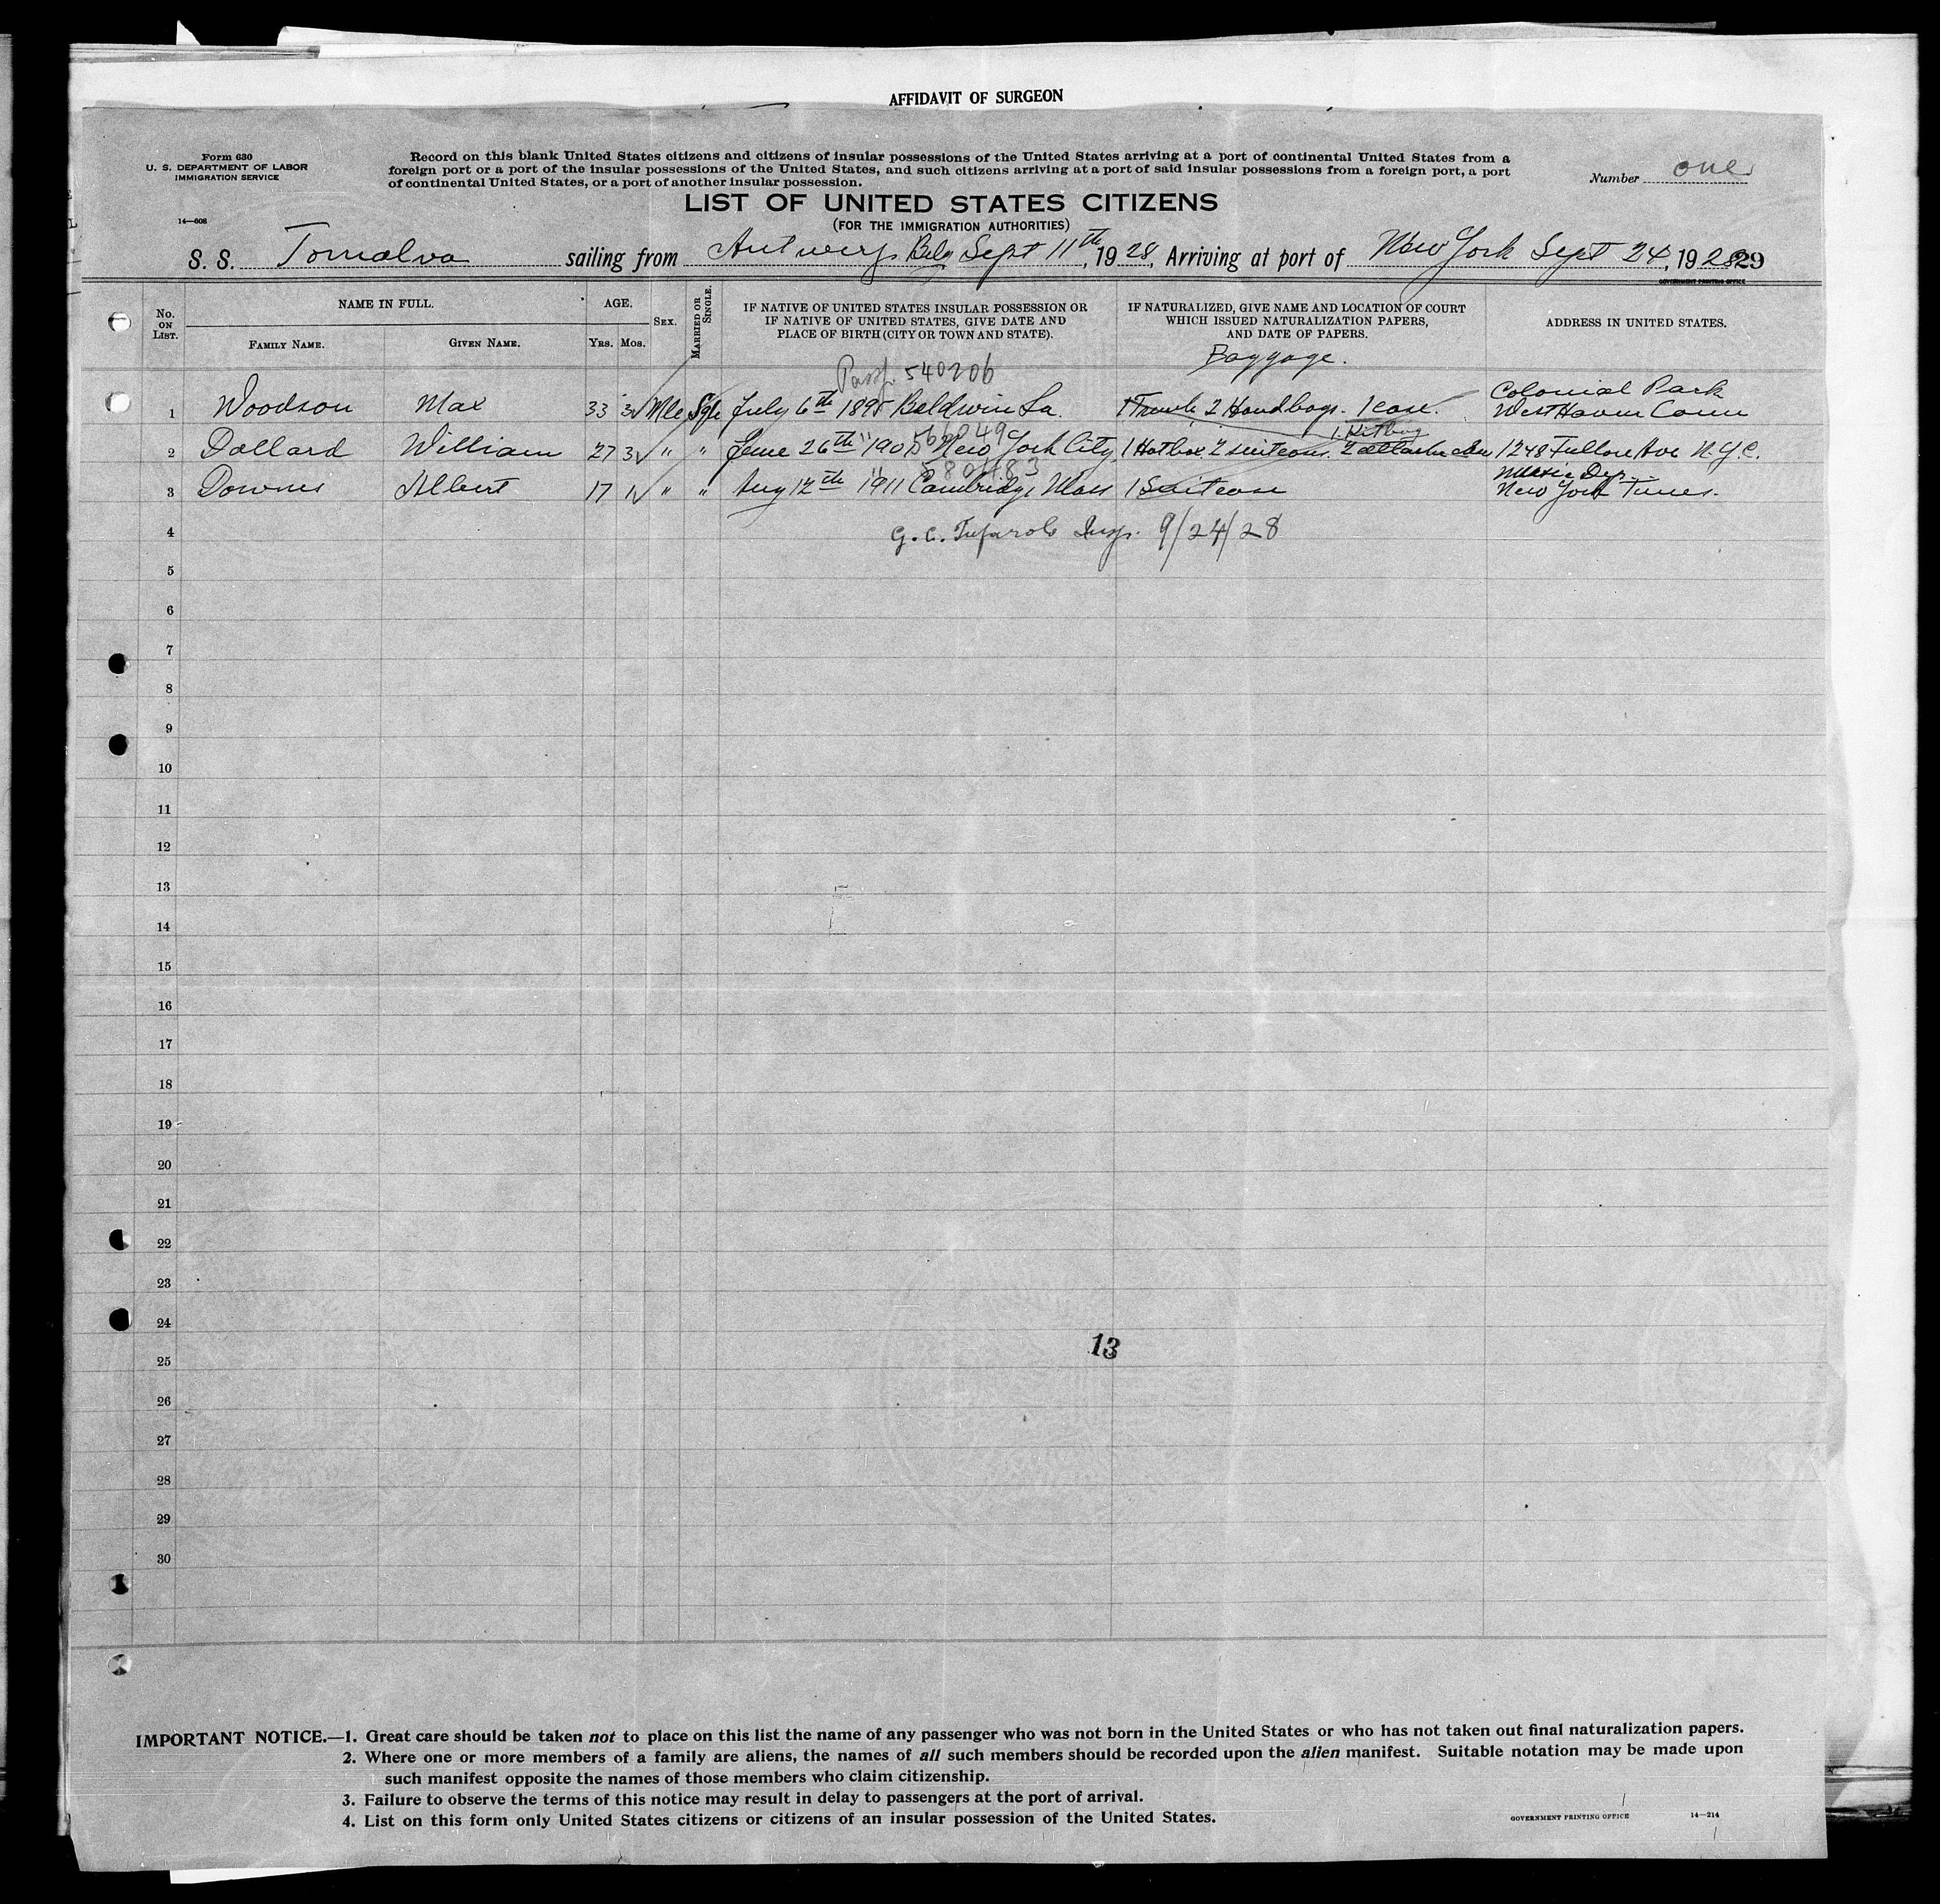 AFFIDAVIT OF SURGEON
Form 630
U. S. DEPARTMENT OF LABOR
IMMIGRATION SERVICE
14—608
Record on this blank United States citizens and citizens of insular possessions of the United States arriving at a port of continental United States from a
foreign port or a port of the insular possessions of the United States, and such citizens arriving at a port of said insular possessions from a foreign port, a port
of continental United States, or a port of another insular possession.
Number one
LIST OF UNITED STATES CITIZENS
(FOR THE IMMIGRATION AUTHORITIES)
S. S. Tomalva sailing from Antwerp Belg Sept 11th, 1928, Arriving at port of New York Sept 24, 1928 29
GOVERNMENT PRINTING OFFICE
No. ON LIST. NAME IN FULL. AGE. SEX. MARRIED OR SINGLE. IF NATIVE OF UNITED STATES INSULAR POSSESSION OR IF NATIVE OF UNITED STATES, GIVE DATE AND PLACE OF BIRTH (CITY OR TOWN AND STATE). IF NATURALIZED, GIVE NAME AND LOCATION OF COURT WHICH ISSUED NATURALIZATION PAPERS, AND DATE OF PAPERS. ADDRESS IN UNITED STATES.
FAMILY NAME. GIVEN NAME. YRS. MOS.
Baggage.
Passp. 540206
Colonial Park
1 Woodson Max 33 3 Mle Sgle July 6th 1895 Baldwin La. 1 Trunk 2 Handbags. 1 case. West Haven Conn
566049 1 Kitbag
2 Dollard William 27 3 " " June 26th 190 New York City 1 Hatbox 2 suitcases. 2 1248 Ave N.Y.C.
580483 Music Dep.
3 Downes Albert 17 1 " " Aug 12th 1911 Cambridge Mass 1 Suitcase New York Times.
4 G. C. Insp. 9/24/28
5
6
7
8
9
10
11
12
13
14
15
16
17
18
19
20
21
22
23
24
13
25
26
27
28
29
30
IMPORTANT NOTICE.—1. Great care should be taken not to place on this list the name of any passenger who was not born in the United States or who has not taken out final naturalization papers.
2. Where one or more members of a family are aliens, the names of all such members should be recorded upon the alien manifest. Suitable notation may be made upon
such manifest opposite the names of those members who claim citizenship.
3. Failure to observe the terms of this notice may result in delay to passengers at the port of arrival.
4. List on this form only United States citizens or citizens of an insular possession of the United States.
GOVERNMENT PRINTING OFFICE 14—214